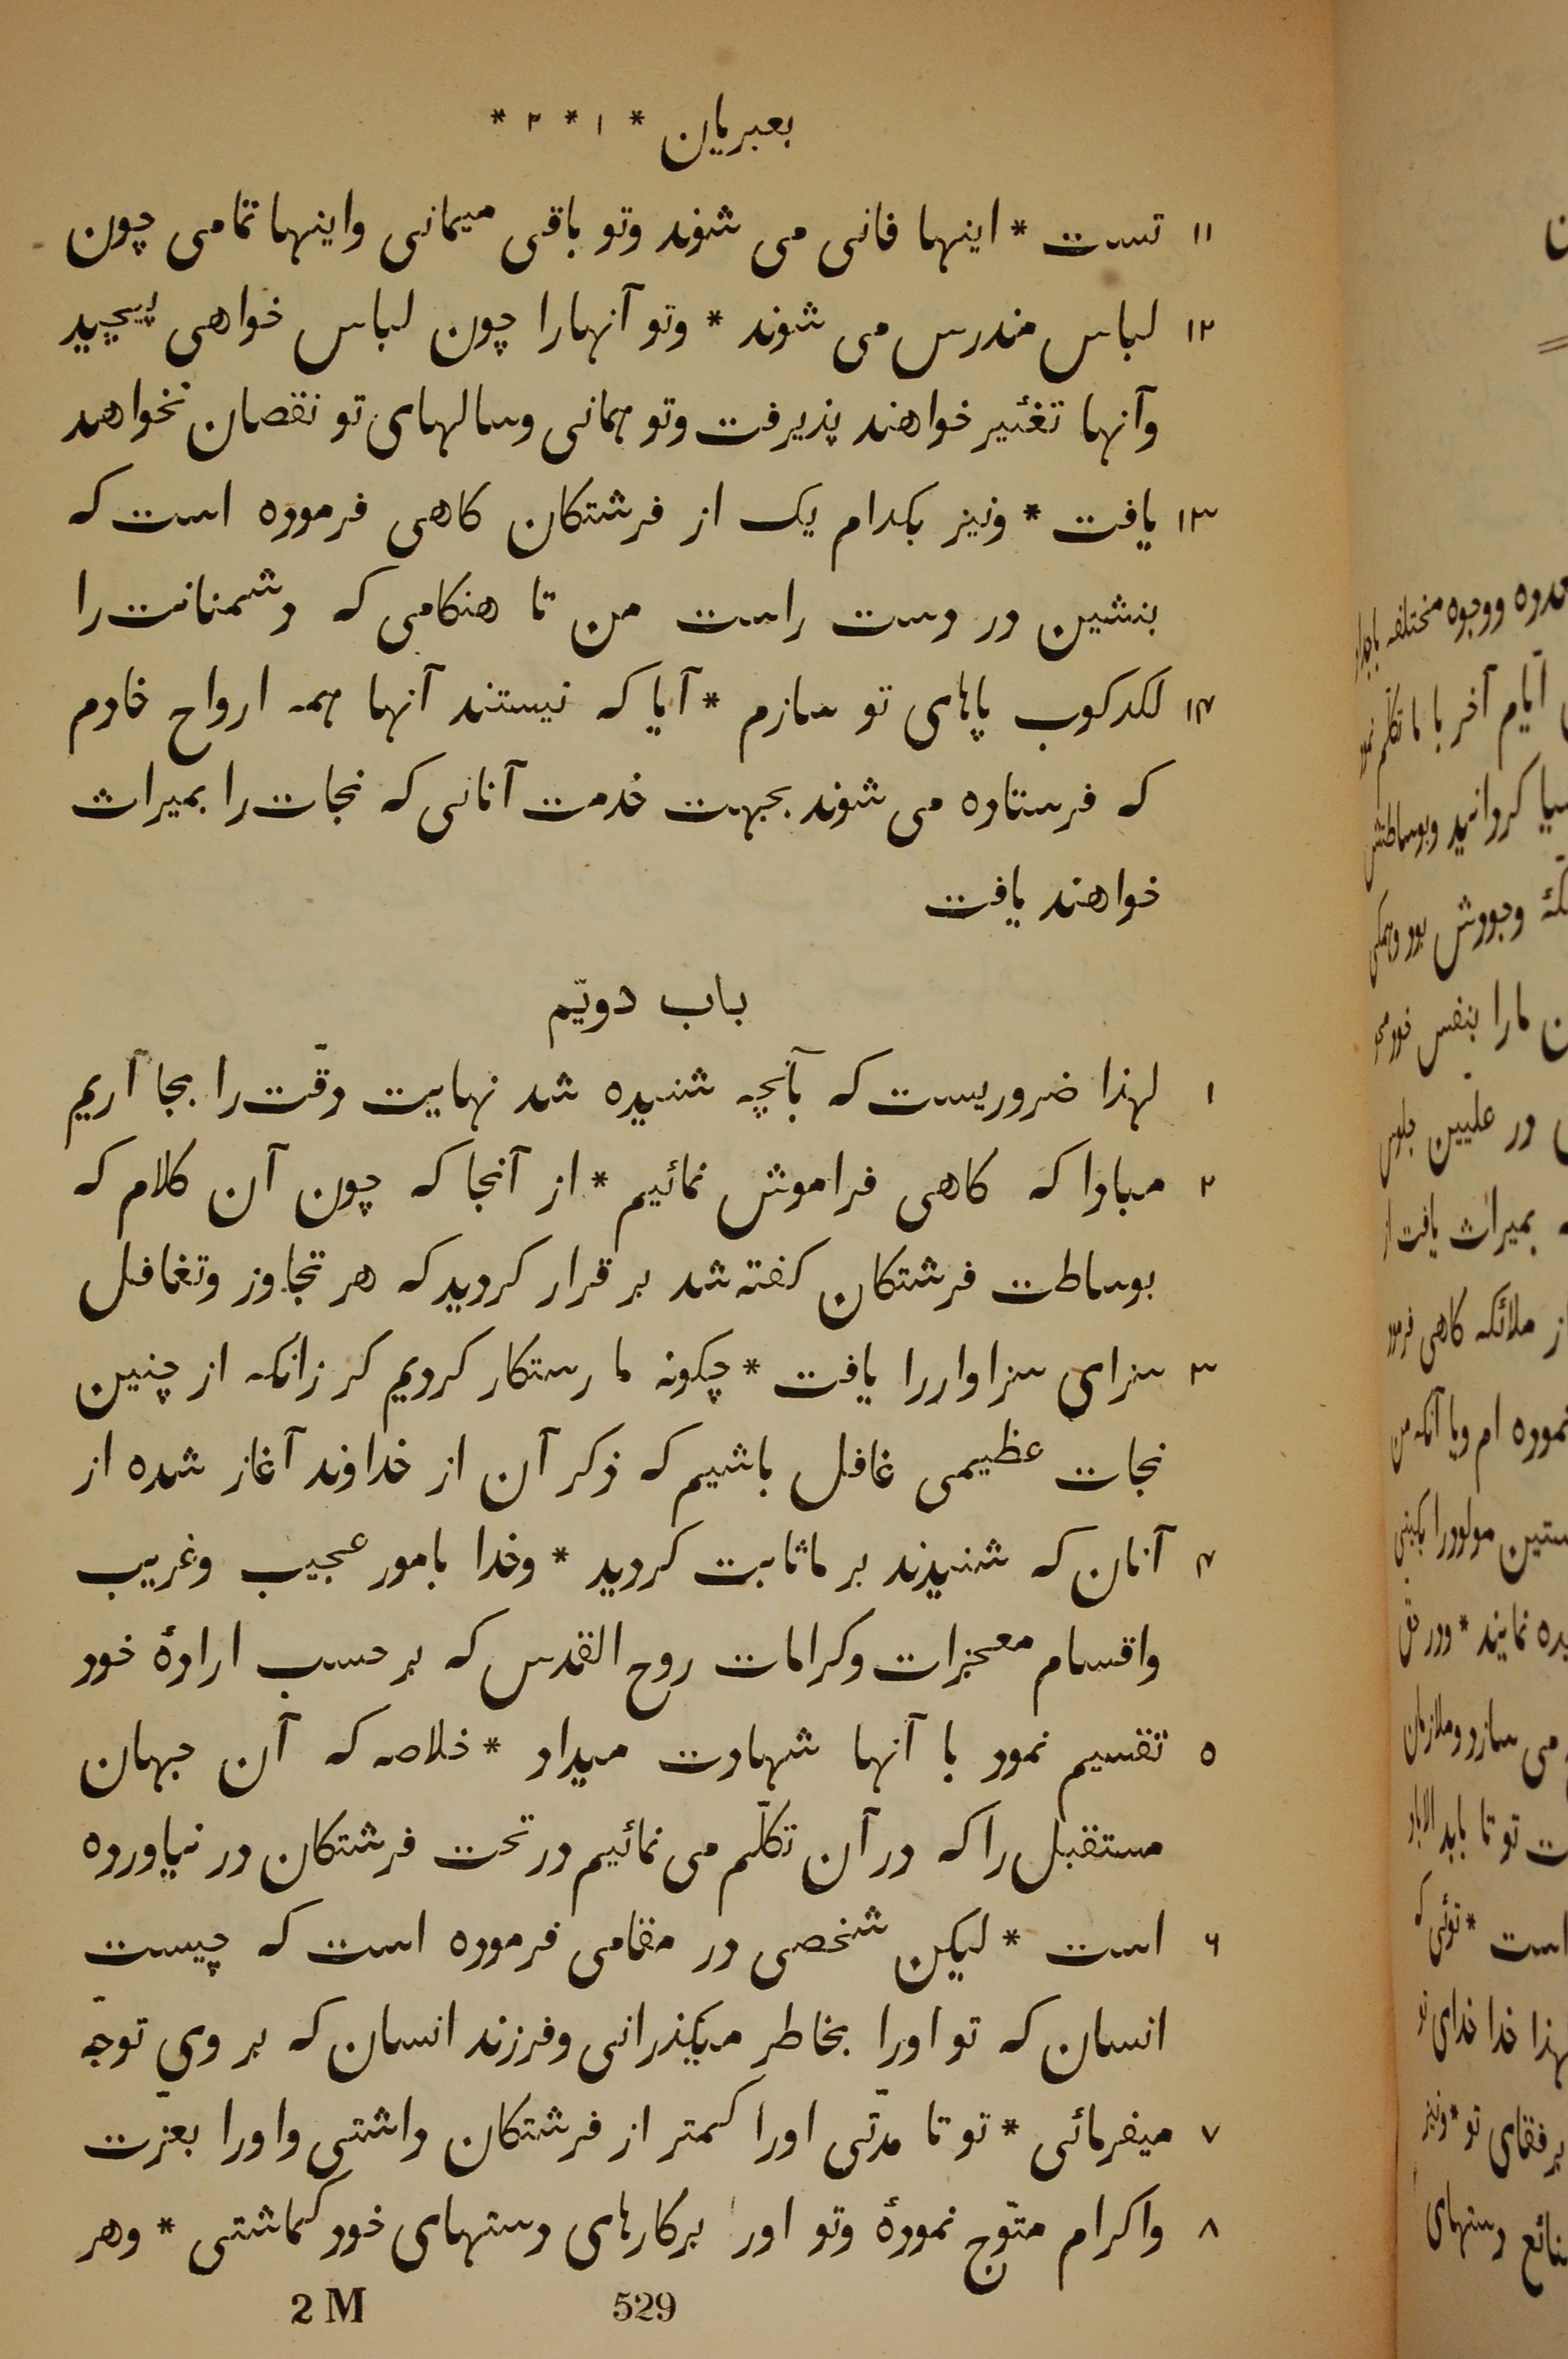 بعبریان * ۱ * ۲ *
۱۱ تست * اینها فانی می شوند وتو باقی میمانی واینها تمامی چون
۱۲ لباس مندرس می شوند * وتو آنهارا چون لباس خواهی پیچید
وآنها تغئیر خواهند پذیرفت وتو همانی وسالهای تو نقصان نخواهد
۱۳ یافت * ونیز بکدام یک از فرشتکان کاهی فرموده است که
بنشین در دست راست من تا هنکامی که دشمنانت را
۱۴ لکدکوب پاهای تو سازم * آیا که نیستند آنها همه ارواح خادم
که فرستاده می شوند بجهت خدمت آنانی که نجات را بمیراث
خواهند یافت
باب دویّم
۱ لهذا ضروریست که بآنچه شنیده شد نهایت دقّت را بجا آریم
۲ مبادا که کاهی فراموش نمائیم * از آنجا که چون آن کلام که
بوساطت فرشتکان کفته شد بر قرار کردید که هر تجاوز وتغافل
۳ سزای سزاواررا یافت * چکونه ما رستکار کردیم کر زانکه از چنین
نجات عظیمی غافل باشیم که ذکر آن از خداوند آغاز شده از
۴ آنان که شنیدند بر ما ثابت کردید * وخدا بامور عجیب وغریب
واقسام معجزات وکرامات روح القدس که بر حسب ارادهٔ خود
۵ تقسیم نمود با آنها شهادت میداد * خلاصه که آن جهان
مستقبل را که در آن تکلّم می نمائیم در تحت فرشتکان در نیاورده
۶ است * لیکن شخصی در مقامی فرموده است که چیست
انسان که تو اورا بخاطر میکذرانی وفرزند انسان که بر وی توجّه
۷ میفرمائی * تو تا مدّتی اورا کمتر از فرشتکان داشتی واورا بعزّت
۸ واکرام متوّج نمودهٔ وتو اورا برکارهای دستهای خود کماشتی * وهر
2 M 529